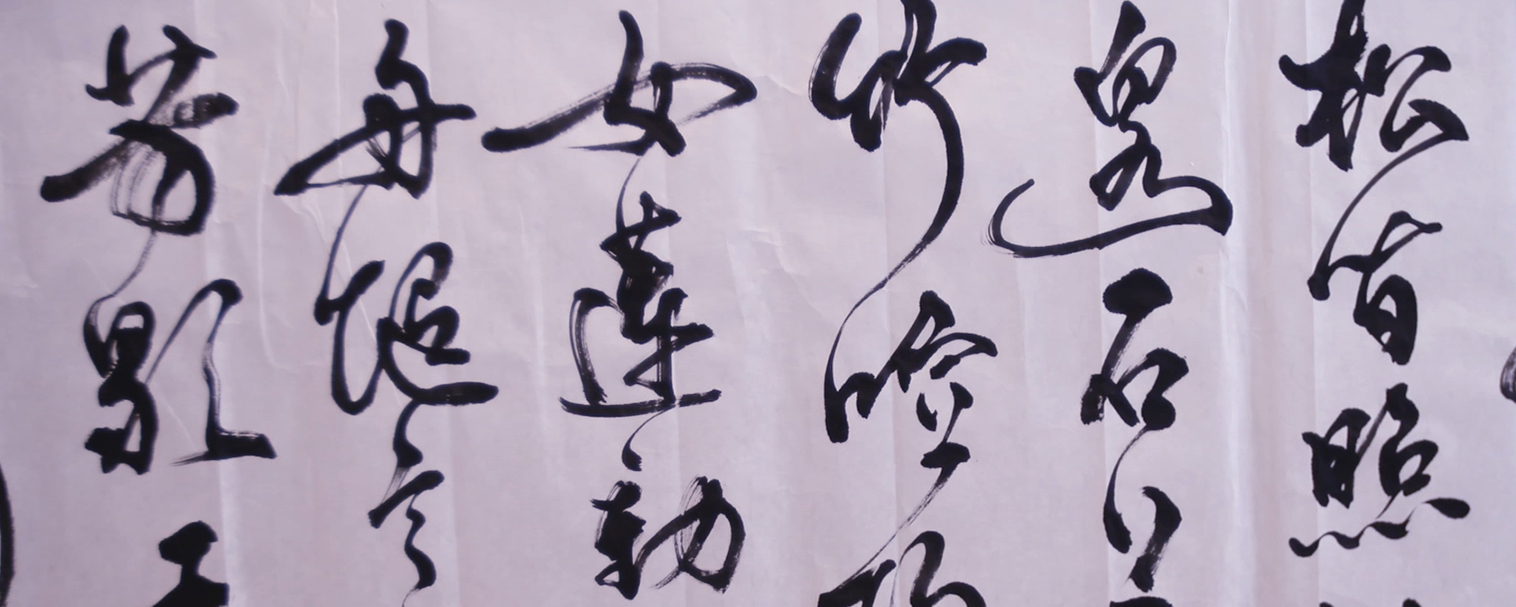 松間照
泉石上
竹喧歸
女蓮動
舟隨意
芳歇王